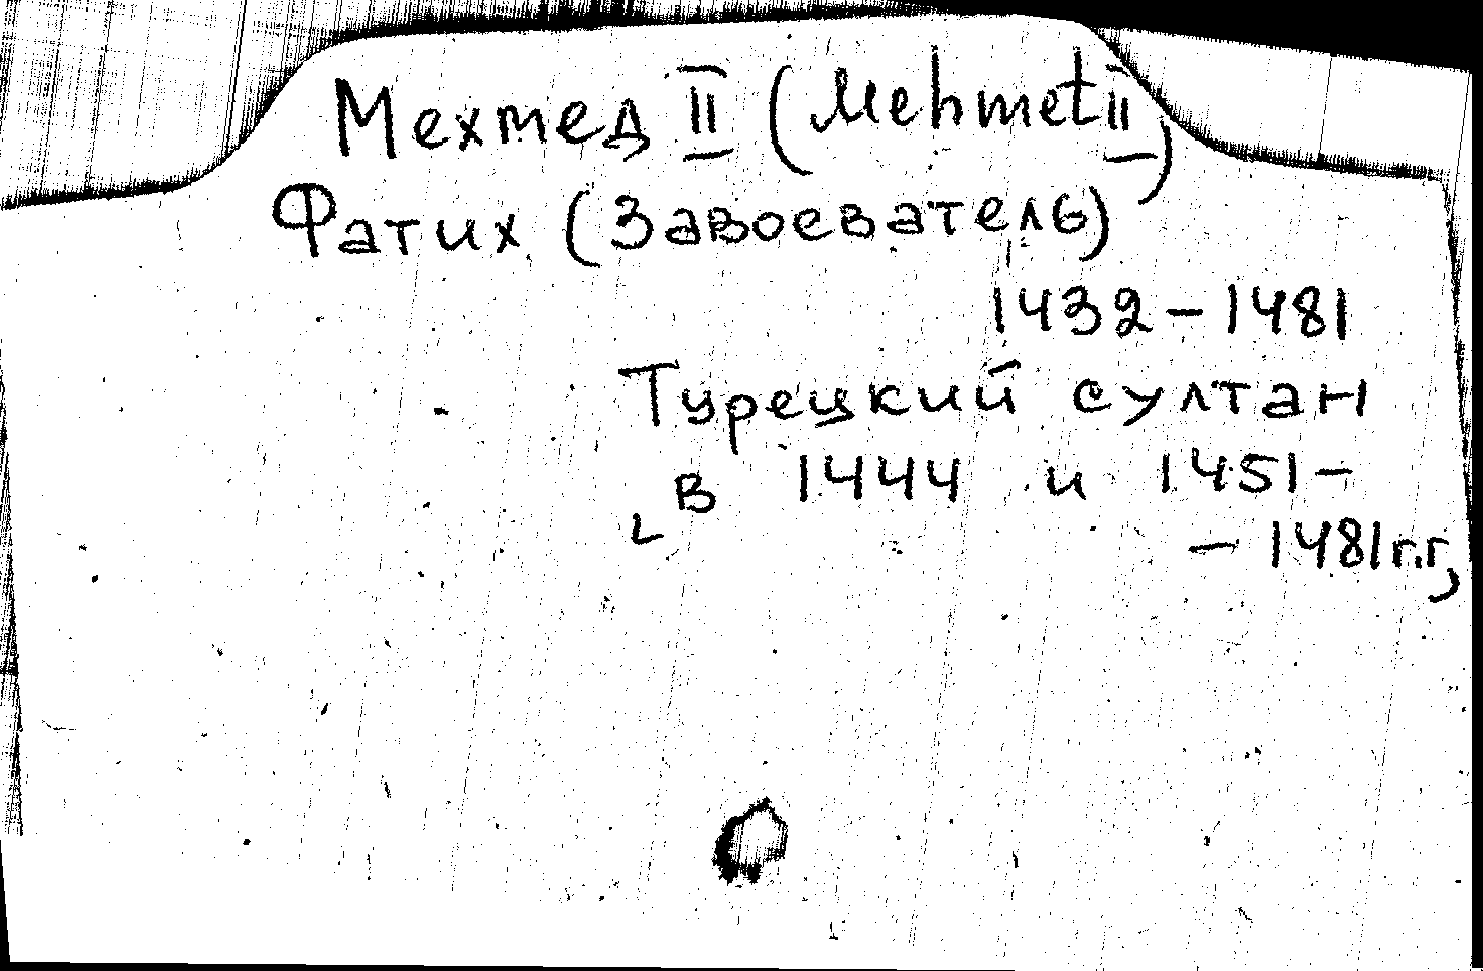 Мехмед II (Mehmet II)
Фатих (Завоеватель)
1432 – 1481
Турецкий султан
в 1444 и 1451 –
– 1481 г.г,